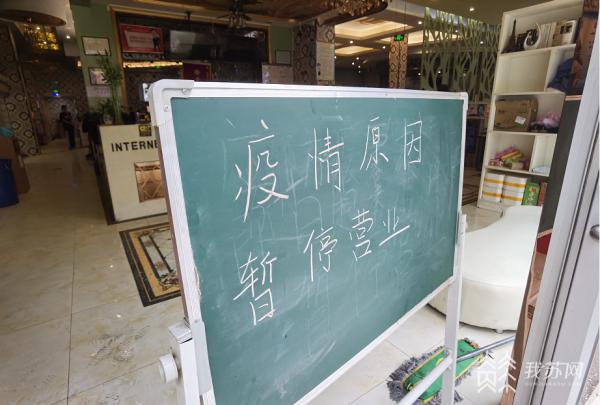 疫情原因
暂停营业
INTERNE
我苏网